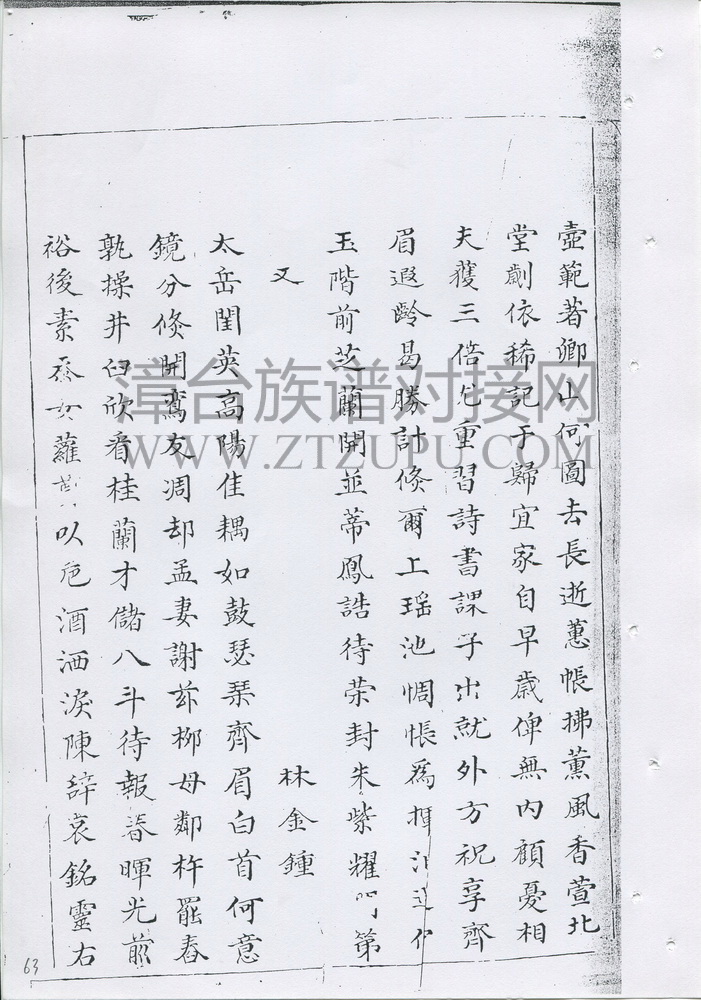 壺範著鄉山何圖去長逝蕙帳拂薰風香萱北
堂劇依稀記于歸宜家自早歲俾無內顧憂相
夫獲三倍兄重習詩書課子出就外方祝享齊
眉遐齡曷勝計倏爾上瑤池惆悵為揮
玉階前芝蘭開並蒂鳳誥待荣封朱紫耀門第
又 林金鍾
太岳閨英高陽佳耦如鼓瑟琹齊眉白首何意
鏡分倏開鸞友凋却孟妻謝茲柳母鄰杵罷舂
孰操井臼欣看桂蘭才儲八斗待報春暉光前
裕後素女蘿以巵酒洒淚陳辞哀銘靈右
漳台族谱对接网
WWW.ZTZUPU.COM
63